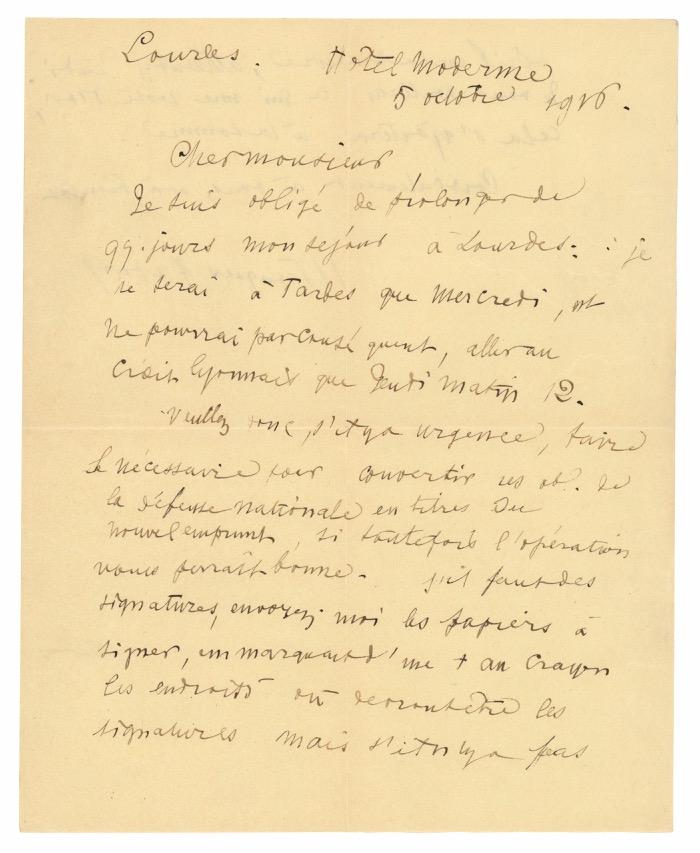 Lourdes. Hotel Moderne
5 octobre 1916.
Cher monsieur
Je suis obligé de prolonger de
qq. jours mon sejour à Lourdes : je
ne serai à Tarbes que Mercredi, et
ne pourrai par conséquent, aller au
Crédit Lyonnais que Jeudi matin 12.
Veuillez donc, s'il y a urgence, faire
le nécessaire pour convertir les ob. de
la défense nationale en titres du
nouvel emprunt, si toutefois l'opération
vous paraît bonne. s'il faut des
signatures, envoyez moi les papiers à
signer, en marquant d'une + au crayon
les endroits où devront être les
signatures mais s'il n'y a pas